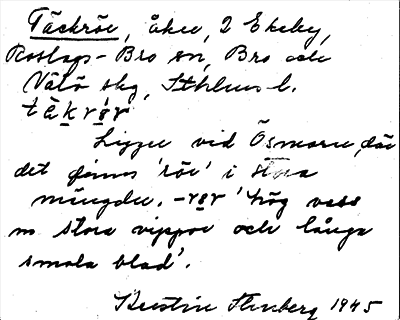 Täckrör, åker, 2 Ekeby,
Roslags-Bro sn, Bro och
Vätö skg, Sthlms l.
täkrör
Ligger vid Ösmaren, där
det finns 'rör' i stora
mängder. -rör 'hög vass
m stora vippor och långa
smala blad'.
Kerstin Stenberg 1945